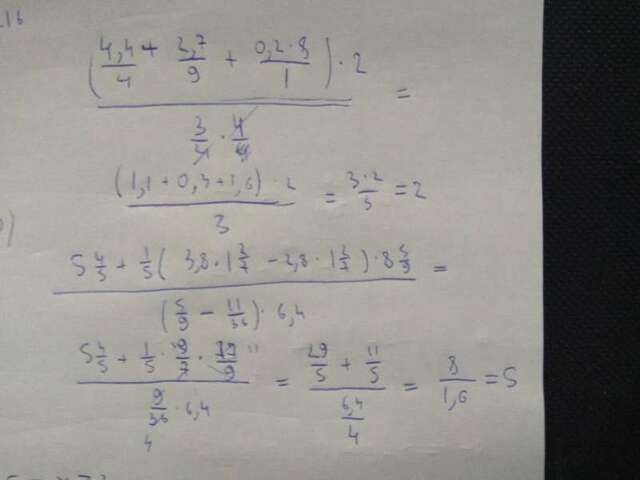 216
(4,4/4 + 2,7/9 + 0,2·8/1)·2 / (3/4 · 4/4) =
(1,1+0,3+1,6)·2 / 3 = 3·2/3 = 2
)
5 4/5 + 1/5(3,8·1 2/7 − 2,8·1 2/7)·8 5/9 / (5/9 − 11/36)·6,4 =
5 4/5 + 1/5 · 9/7 · 77/9 11 / 9/36 4 · 6,4 = 29/5 + 11/5 / 6,4/4 = 8/1,6 = 5